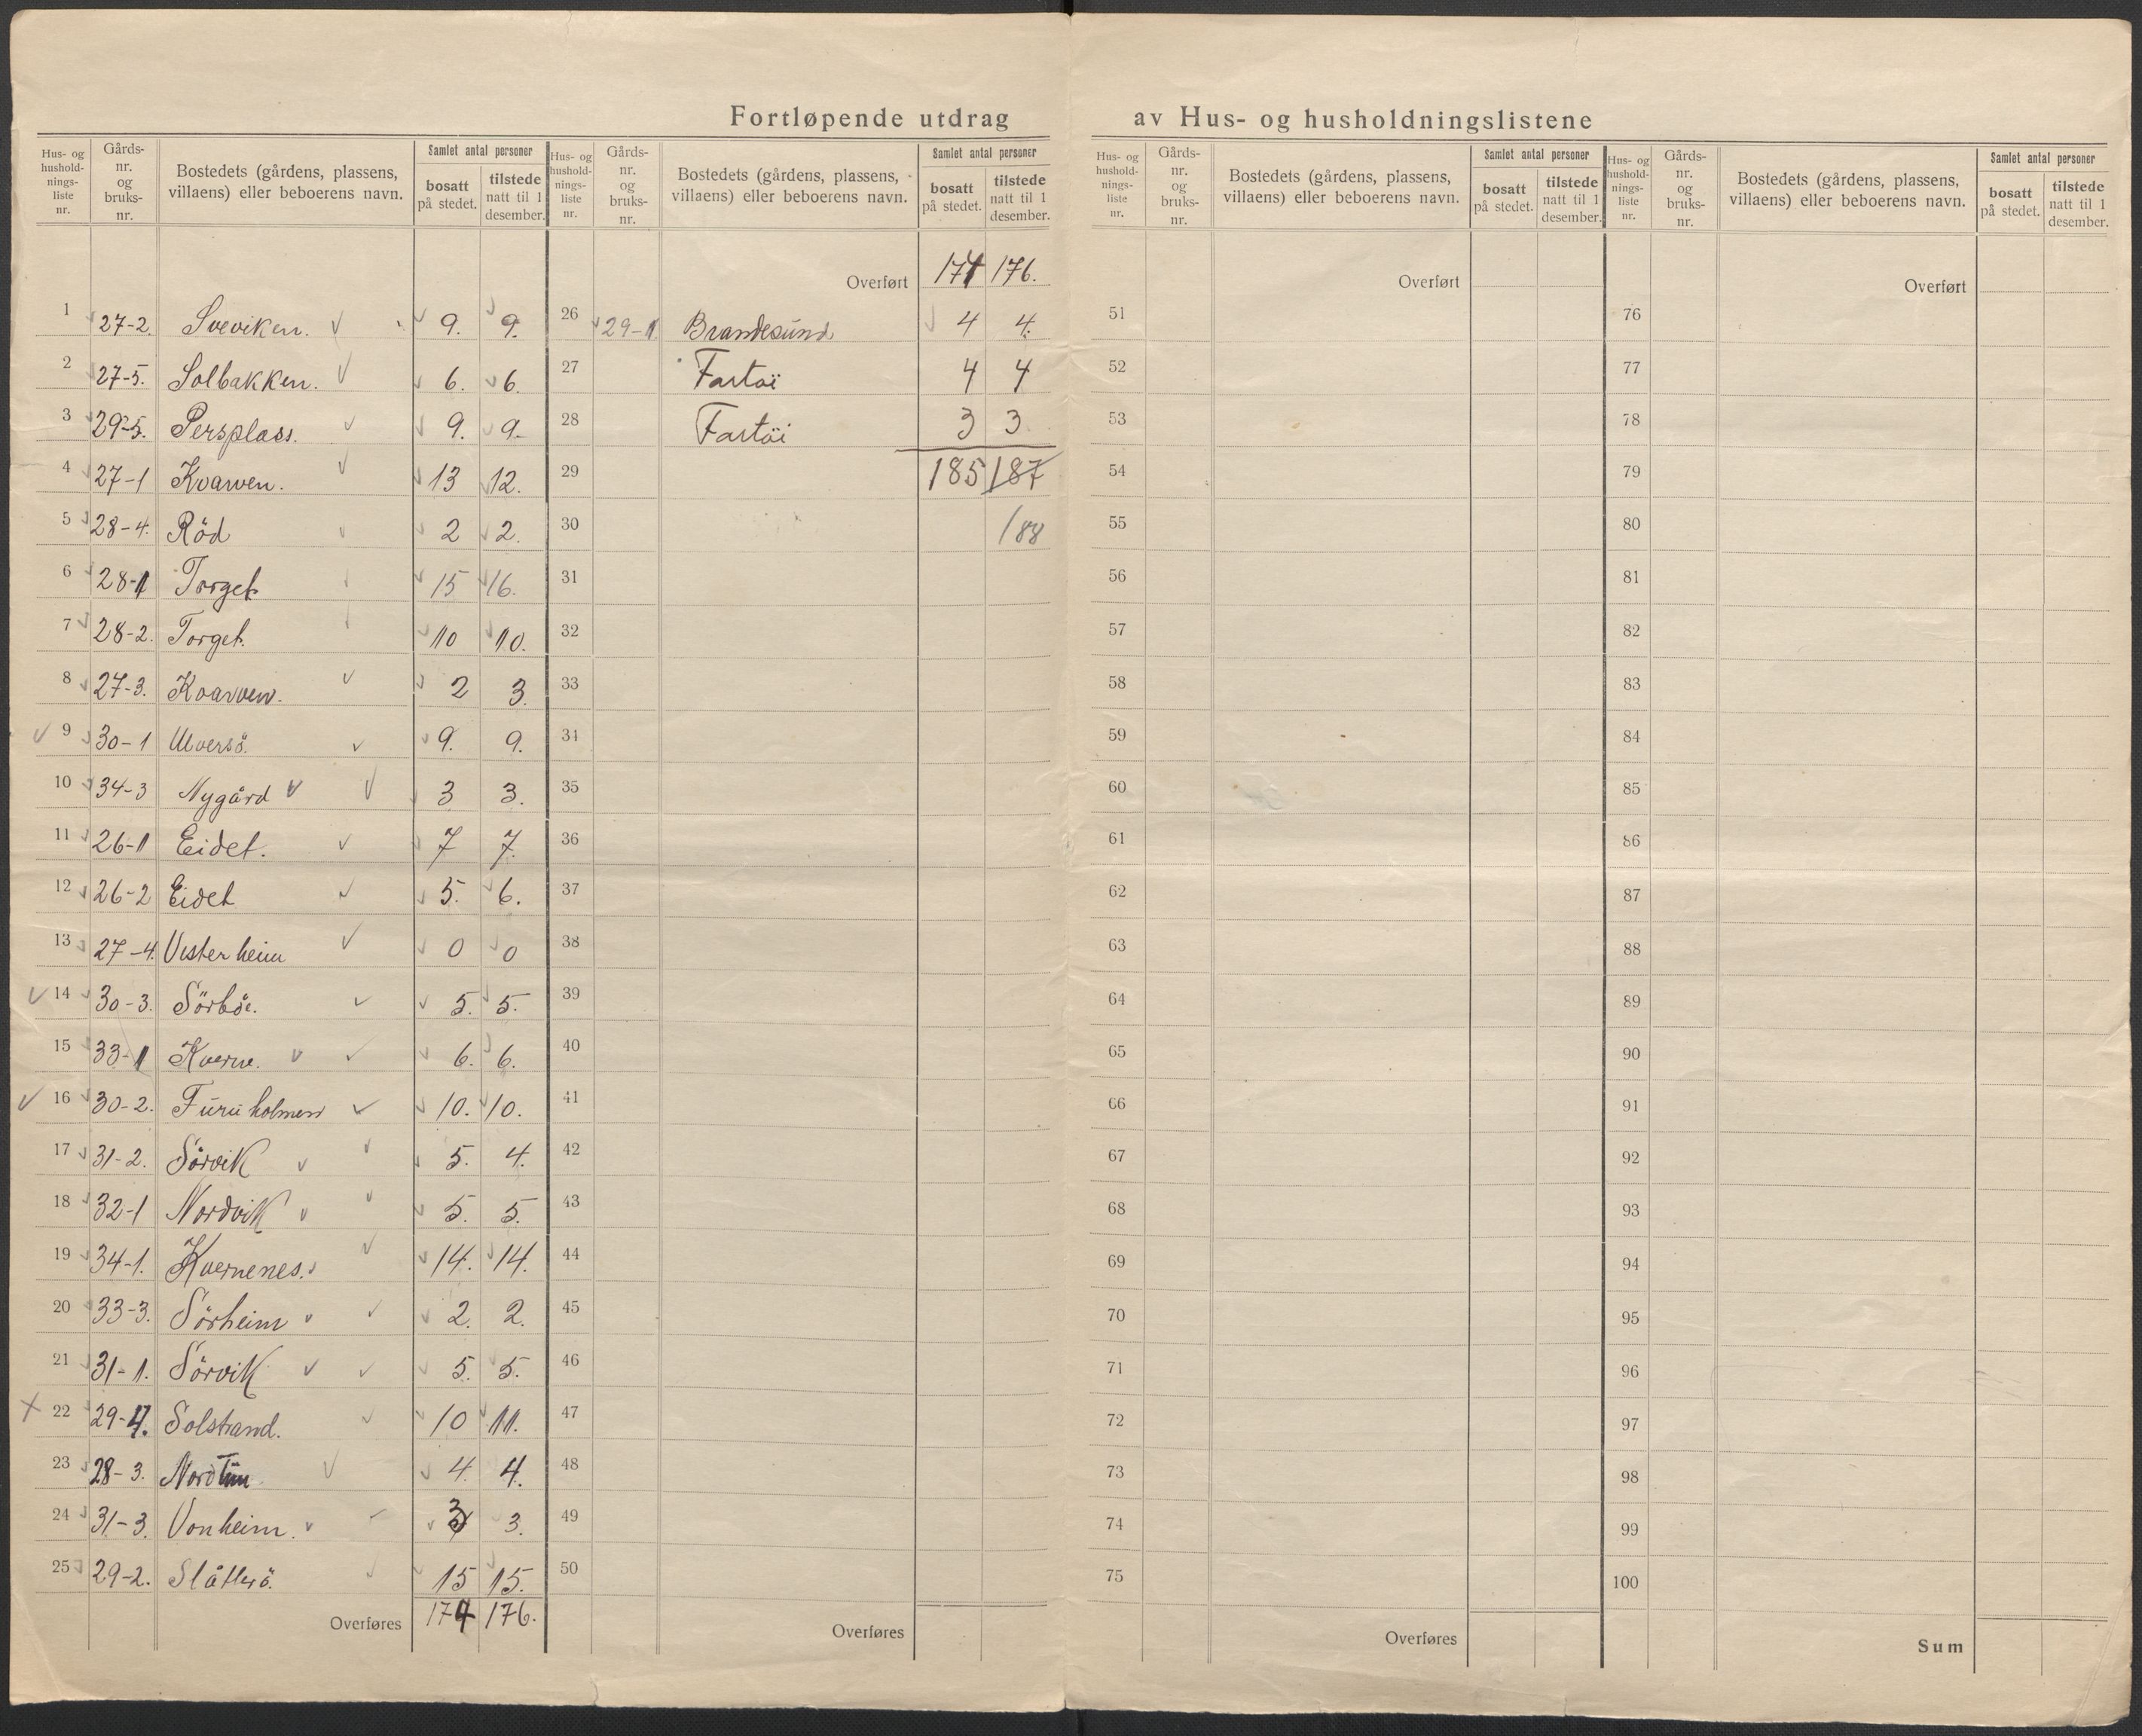 Fortløpende utdrag av Hus- og husholdningslistene
Hus- og hushold-nings-liste nr. Gårds-nr. og bruks-nr. Bostedets (gårdens, plassens, villaens) eller beboerens navn. Samlet antal personer bosatt på stedet. tilstede natt til 1 desember.
1 27-2. Sveviken. 9. 9.
2 27-5. Solbakken. 6. 6.
3 29-5. Persplass. 9. 9.
4 27-1 Kvarven. 13 12.
5 28-4. Röd 2 2.
6 28-1 Torget 15 16.
7 28-2. Torget. 10 10.
8 27-3. Kvarven. 2 3.
9 30-1 Ulversö. 9. 9.
10 34-3 Nygård 3 3.
11 26-1 Eidet. 7 7.
12 26-2 Eidet 5. 6.
13 27-4. Vesterheim 0 0
14 30-3. Sörböe. 5. 5.
15 33-1 Kverne. 6. 6.
16 30-2. Furuholmen 10. 10.
17 31-2. Sörvik 5. 4.
18 32-1 Nordvik 5. 5.
19 34-1. Kvernenes. 14. 14.
20 33-3. Sörheim 2. 2.
21 31-1. Sörvik 5. 5.
22 29-4. Solstrand. 10 11.
23 28-3. Nordtun 4. 4.
24 31-3. Vonheim. 3 3.
25 29-2. Slåtterö. 15 15.
Overføres 174 176.
Hus- og hushold-nings-liste nr. Gårds-nr. og bruks-nr. Bostedets (gårdens, plassens, villaens) eller beboerens navn. Samlet antal personer bosatt på stedet. tilstede natt til 1 desember.
Overført 174 176.
26 29-1. Brandesund 4 4.
27 Fartöi 4 4
28 Fartöi 3 3
29 185 187
30 188
31
32
33
34
35
36
37
38
39
40
41
42
43
44
45
46
47
48
49
50
Overføres
Hus- og hushold-nings-liste nr. Gårds-nr. og bruks-nr. Bostedets (gårdens, plassens, villaens) eller beboerens navn. Samlet antal personer bosatt på stedet. tilstede natt til 1 desember.
Overført
51
52
53
54
55
56
57
58
59
60
61
62
63
64
65
66
67
68
69
70
71
72
73
74
75
Overføres
Hus- og hushold-nings-liste nr. Gårds-nr. og bruks-nr. Bostedets (gårdens, plassens, villaens) eller beboerens navn. Samlet antal personer bosatt på stedet. tilstede natt til 1 desember.
Overført
76
77
78
79
80
81
82
83
84
85
86
87
88
89
90
91
92
93
94
95
96
97
98
99
100
Sum